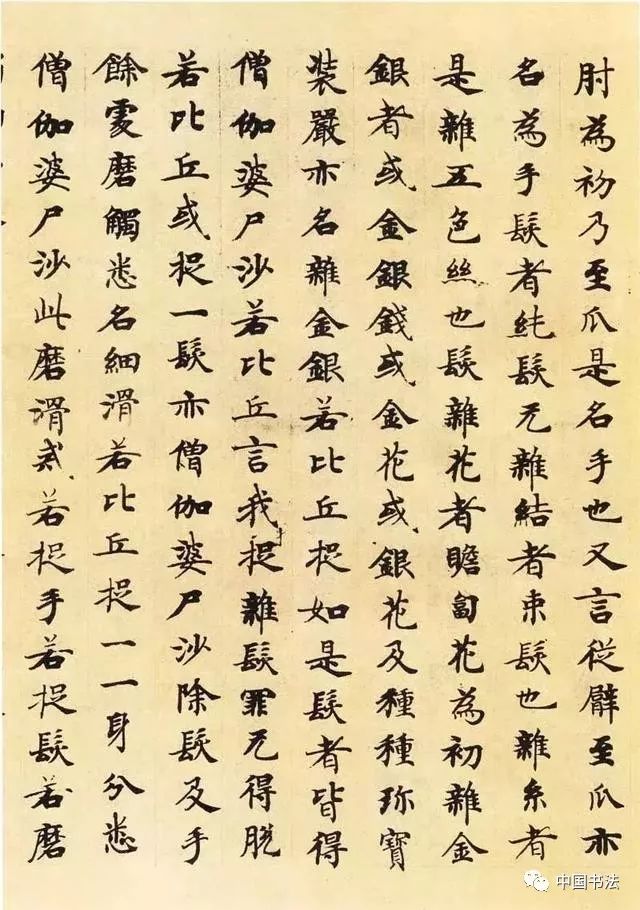 肘為初乃至爪是名手也又言從臂至爪亦
名為手髮者純髮无雜結者束髮也雜糸者
是雜五色絲也髮雜花者瞻蔔花為初雜金
銀者或金銀錢或金花或銀花及種種珎寶
裝嚴亦名雜金銀若比丘捉如是髮者皆得
僧伽婆尸沙若比丘言我捉雜髮罪无得脫
若比丘或捉一髮亦僧伽婆尸沙除髮及手
餘處磨觸悉名細滑若比丘捉一一身分悉
僧伽婆尸沙此磨滑戒若捉手若捉髮若磨
中国书法